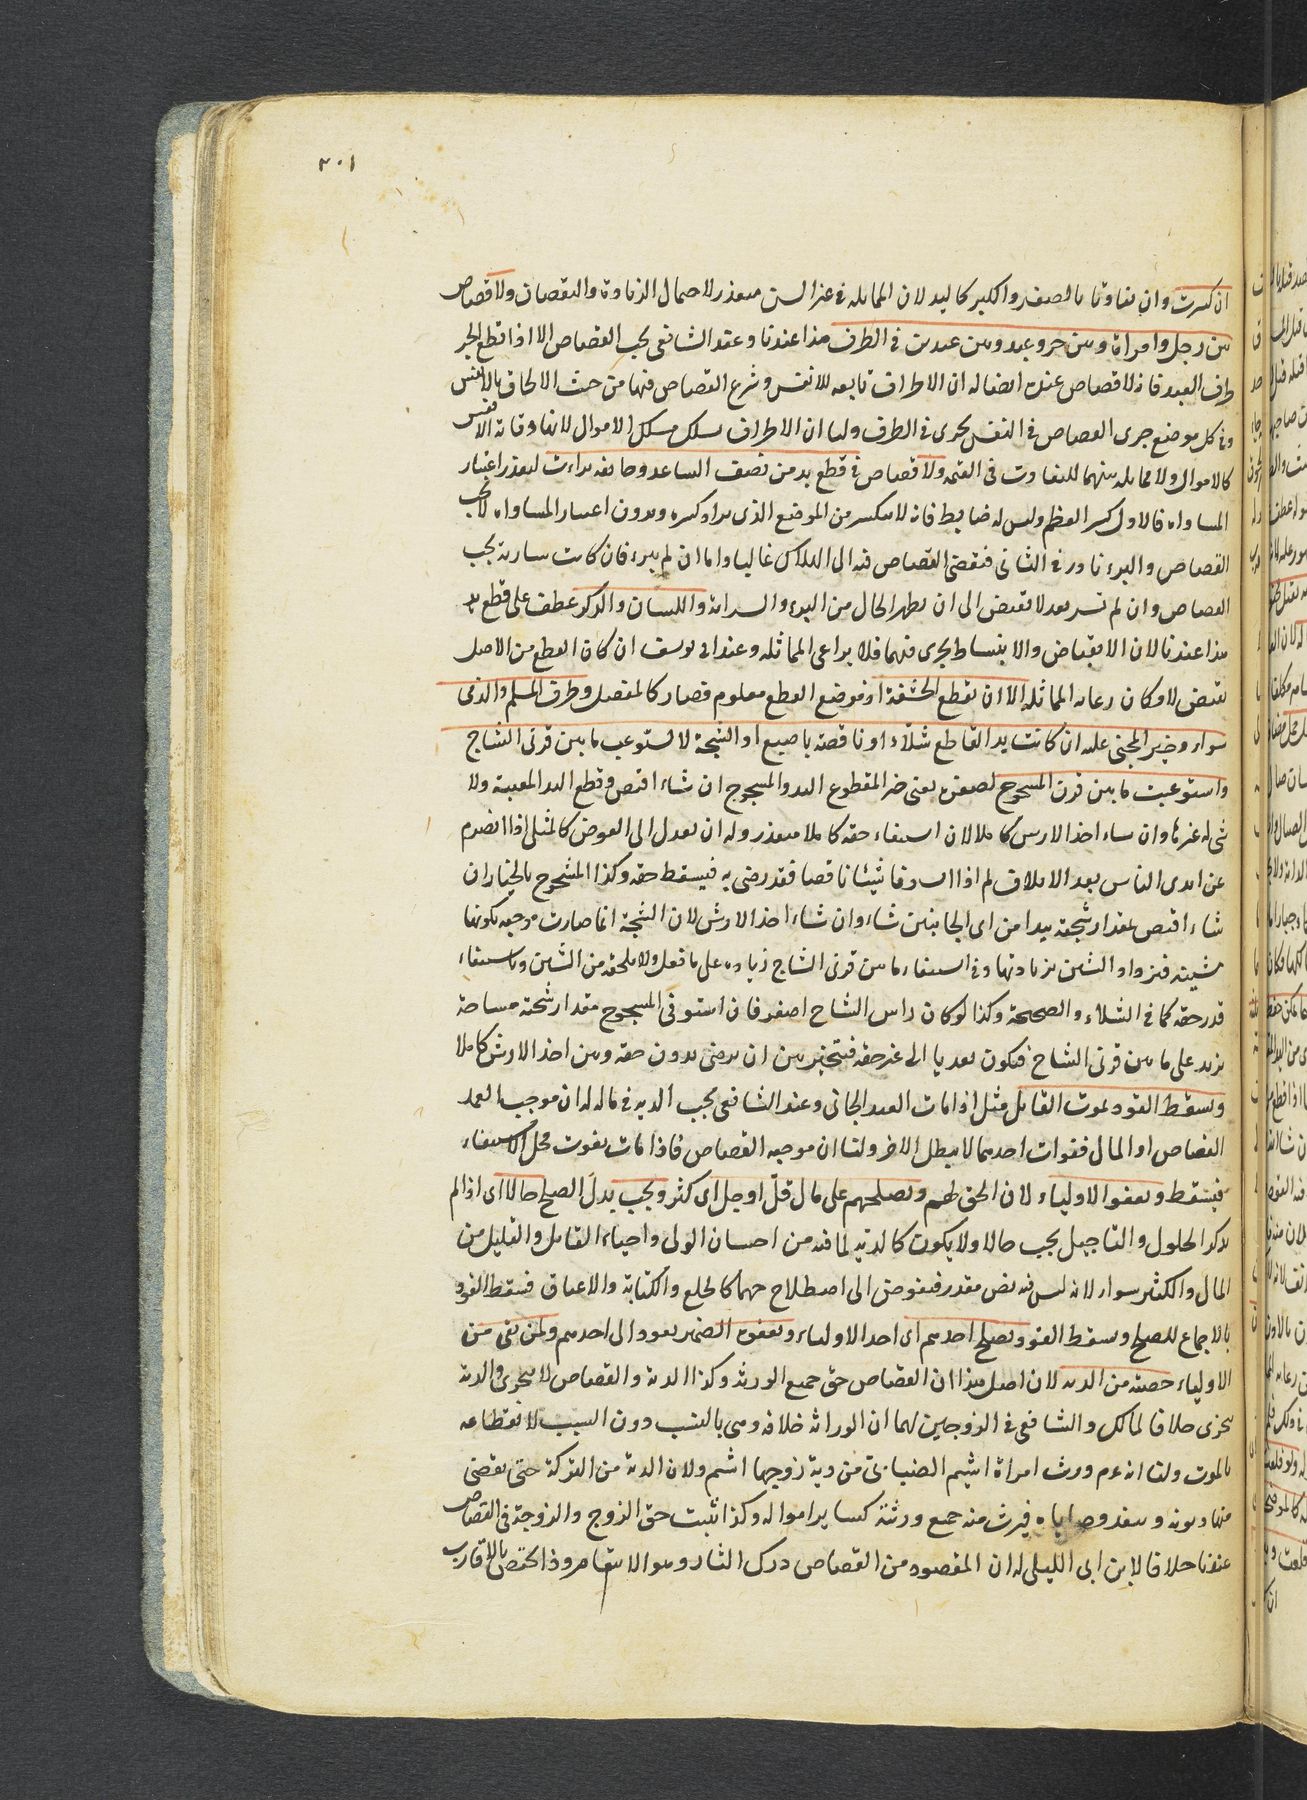 ٢٠١
ان كسرت وان تفاوتا بالصغر والكبر كاليد لان المماثله فى غير السن متعذر لاحتمال الزيادة والنقصان ولا قصاص
بين رجل وامراة وبين حر وعبد وبين عبدين فى الطرف هذا عندنا وعند الشافعى يجب القصاص الا اذا قطع الحر
طرف العبد فانه لا قصاص عنده ايضا له ان الاطراف تابعه للانفس وشرع القصاص فيها من حيث الالحاق بالانفس
وفى كل موضع جرى القصاص فى النفس يجرى فى الطرف ولنا ان الاطراف يسلك مسلك الاموال لانها وقاية الانفس
كالاموال ولا مماثله بينهما للتفاوت فى القيمه ولا قصاص فى قطع يد من نصف الساعد وجائفه براءت لتعذر اعتبار
المساواه فالاول كسر العظم وليس له ضابط فانه لا ينكسر من الموضع الذى يراد كسره وبدون اعتبار المساواه لا يجب
القصاص والبرء نادر فى الثانى فيفضى القصاص فيه الى الهلاك غالبا واما ان لم يبرء فان كانت سارية يجب
القصاص وان لم تسر بعد لا يقتص الى ان يظهر الحال من البرء والسراية واللسان والذكر عطف على قطع يد
هذا عندنا لان الانقباض والانبساط يجرى فيهما فلا يراعى المماثله وعند ابى يوسف ان كان القطع من الاصل
يقتص لامكان رعاية المماثله الا ان يقطع الحشفة اذ موضع القطع معلوم فصار كالمفصل وطرف المسلم والذمى
سواء وخير المجنى عليه ان كانت يد القاطع شلاء او ناقصة باصبع او الشجة لا تستوعب ما بين قرنى الشاج
واستوعبت ما بين قرن المشجوج لصغره يعنى خير المقطوع اليد والمشجوج ان شاء اقتص وقطع اليد المعيبة ولا
شىء له غيرها وان شاء اخذ الارش كاملا لان استيفاء حقه كاملا متعذر وله ان يعدل الى العوض كالمثلى اذا انصرم
عن ايدى الناس بعد الاتلاف ثم اذا استوفا شيئا ناقصا فقد رضى به فيسقط حقه وكذا المشجوج بالخيار ان
شاء اقتص بمقدار شجته يبدا من اى الجانبين شاء وان شاء اخذ الارش لان الشجة انما صارت موجبه لكونها
شينة فيزداد الشين بزيادتها وفى استيفاء ما بين قرنى الشاج زياده على ما فعل ولا يلحقه من الشين باستيفاء
قدر حقه كما فى الشلاء والصحيحة وكذا لو كان راس الشاج اصغر فان استوفى المشجوج مقدار شجته مساحة
يزيد على ما بين قرنى الشاج فيكون تعديا الى غير حقه فيتخير بين ان يرضى بدون حقه وبين اخذ الارش كاملا
ويسقط القود بموت القاتل مثل اذا مات العبد الجانى وعند الشافعى يجب الديه فى ماله له ان موجب العمد
القصاص او المال ففوات احدهما لا يبطل الاخر ولنا ان موجبه القصاص فاذا مات يفوت محل الاستيفاء
فيسقط وبعفو الاولياء لان الحق لهم وبصلحهم على مال قلّ او جل اى كثر ويجب بدل الصلح حالا اى اذا لم
يذكر الحلول والتاجيل يجب حالا ولا يكون كالدية لما فيه من احسان الولى واحياء القاتل والقليل من
المال والكثير سواء لانه ليس فيه نص مقدر فيفوض الى اصطلاحهما كالخلع والكتابة والاعتاق فيسقط القود
بالاجماع للصلح ويسقط القود بصلح احدهم اى احد الاولياء وبعفوه الضمير يعود الى احدهم ولمن بقى من
الاولياء حصته من الديه لان اصل هذا ان القصاص حق جميع الورثه وكذا الدية والقصاص لا يتجزى والدية
يتجزى خلافا لمالك والشافعى فى الزوجين لهما ان الوراثة خلافه وهى بالنسب دون السبب لانقطاعه
بالموت ولنا انه عم ورث امراة اشيم الضبابى من دية زوجها اشيم ولان الدية من التركة حتى يقضى
منها ديونه وينفذ وصاياه فيرث منه جميع ورثته كساير امواله وكذا ثبت حق الزوج والزوجة فى القصاص
عندنا خلافا لابن ابى الليلى له ان المقصود من القصاص درك الثار وهو الانتقام وذا يختص بالاقارب